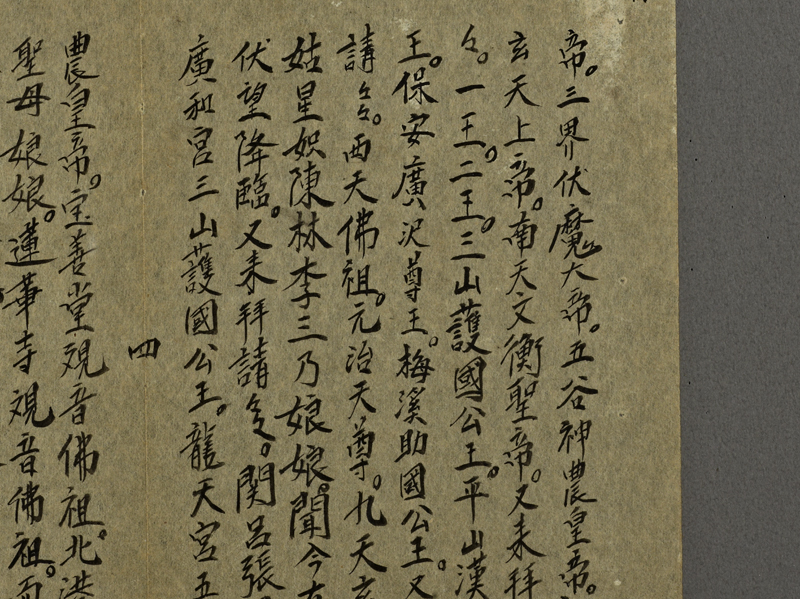 帝。三界伏魔大帝。五谷神農皇帝。
玄天上帝。南天文衡聖帝。又来拜
々。一王。二王。三山護國公王。平山漢
王。保安廣沢尊王。梅溪助國公王。又
請々々。西天佛祖。元治天尊。九天玄
姑星娘陳林李三乃娘娘。聞今
伏望降臨。又来拜請々。関呂張
廣和宮三山護國公王。龍天宮五
四
農皇帝。宝善堂観音佛祖。北港
聖母娘娘。蓮華寺観音佛祖。西